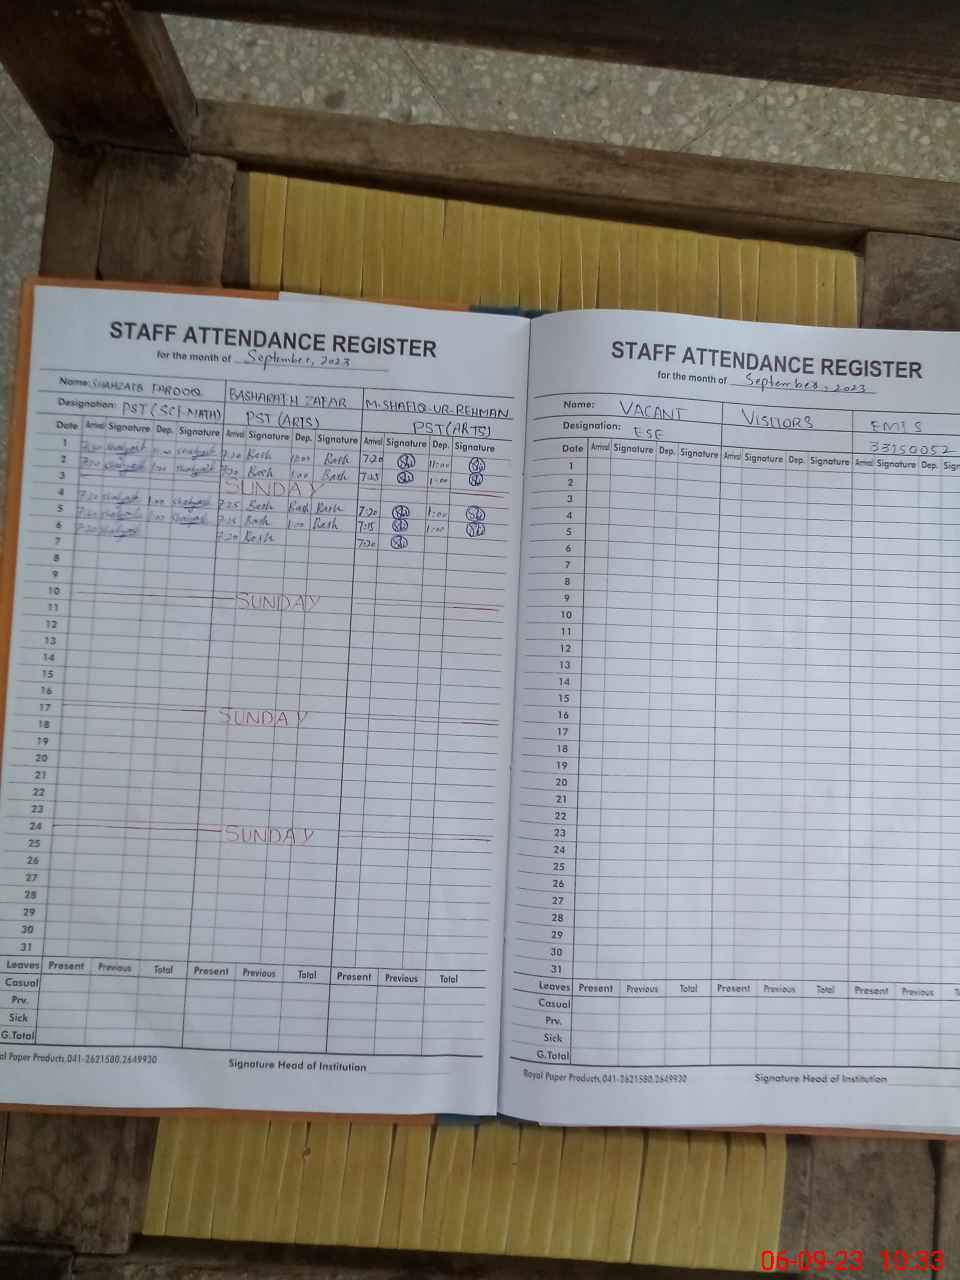 STAFF ATTENDANCE REGISTER
for the month of September, 2023
Name: SHAHZAIB FAROOQ BASHARATH ZAFAR M. SHAFIQ-UR-REHMAN
Designation: PST (SCI-MATH) PST (ARTS) PST (ARTS)
Date Arrival Signature Dep. Signature Arrival Signature Dep. Signature Arrival Signature Dep. Signature
1 7:20 11:00
2 7:20 1:00 7:25 1:00
3 SUNDAY
4 7:20 1:00 7:25 7:20 1:00
5 1:00 7:25 1:00 7:15 1:00
6 7:20 7:20 7:20
7
8
9
10 SUNDAY
11
12
13
14
15
16
17 SUNDAY
18
19
20
21
22
23
24 SUNDAY
25
26
27
28
29
30
31
Leaves Present Previous Total Present Previous Total Present Previous Total
Casual
Prv.
Sick
G.Total
al Paper Products,041-2621580,2649930 Signature Head of Institution
STAFF ATTENDANCE REGISTER
for the month of September, 2023
Name: VACANT VISITORS EMIS
Designation: ESE 33150052
Date Arrival Signature Dep. Signature Arrival Signature Dep. Signature Arrival Signature Dep. Sign
1
2
3
4
5
6
7
8
9
10
11
12
13
14
15
16
17
18
19
20
21
22
23
24
25
26
27
28
29
30
31
Leaves Present Previous Total Present Previous Total Present Previous
Casual
Prv.
Sick
G.Total
Royal Paper Products,041-2621580,2649930 Signature Head of Institution
06-09-23 10:33